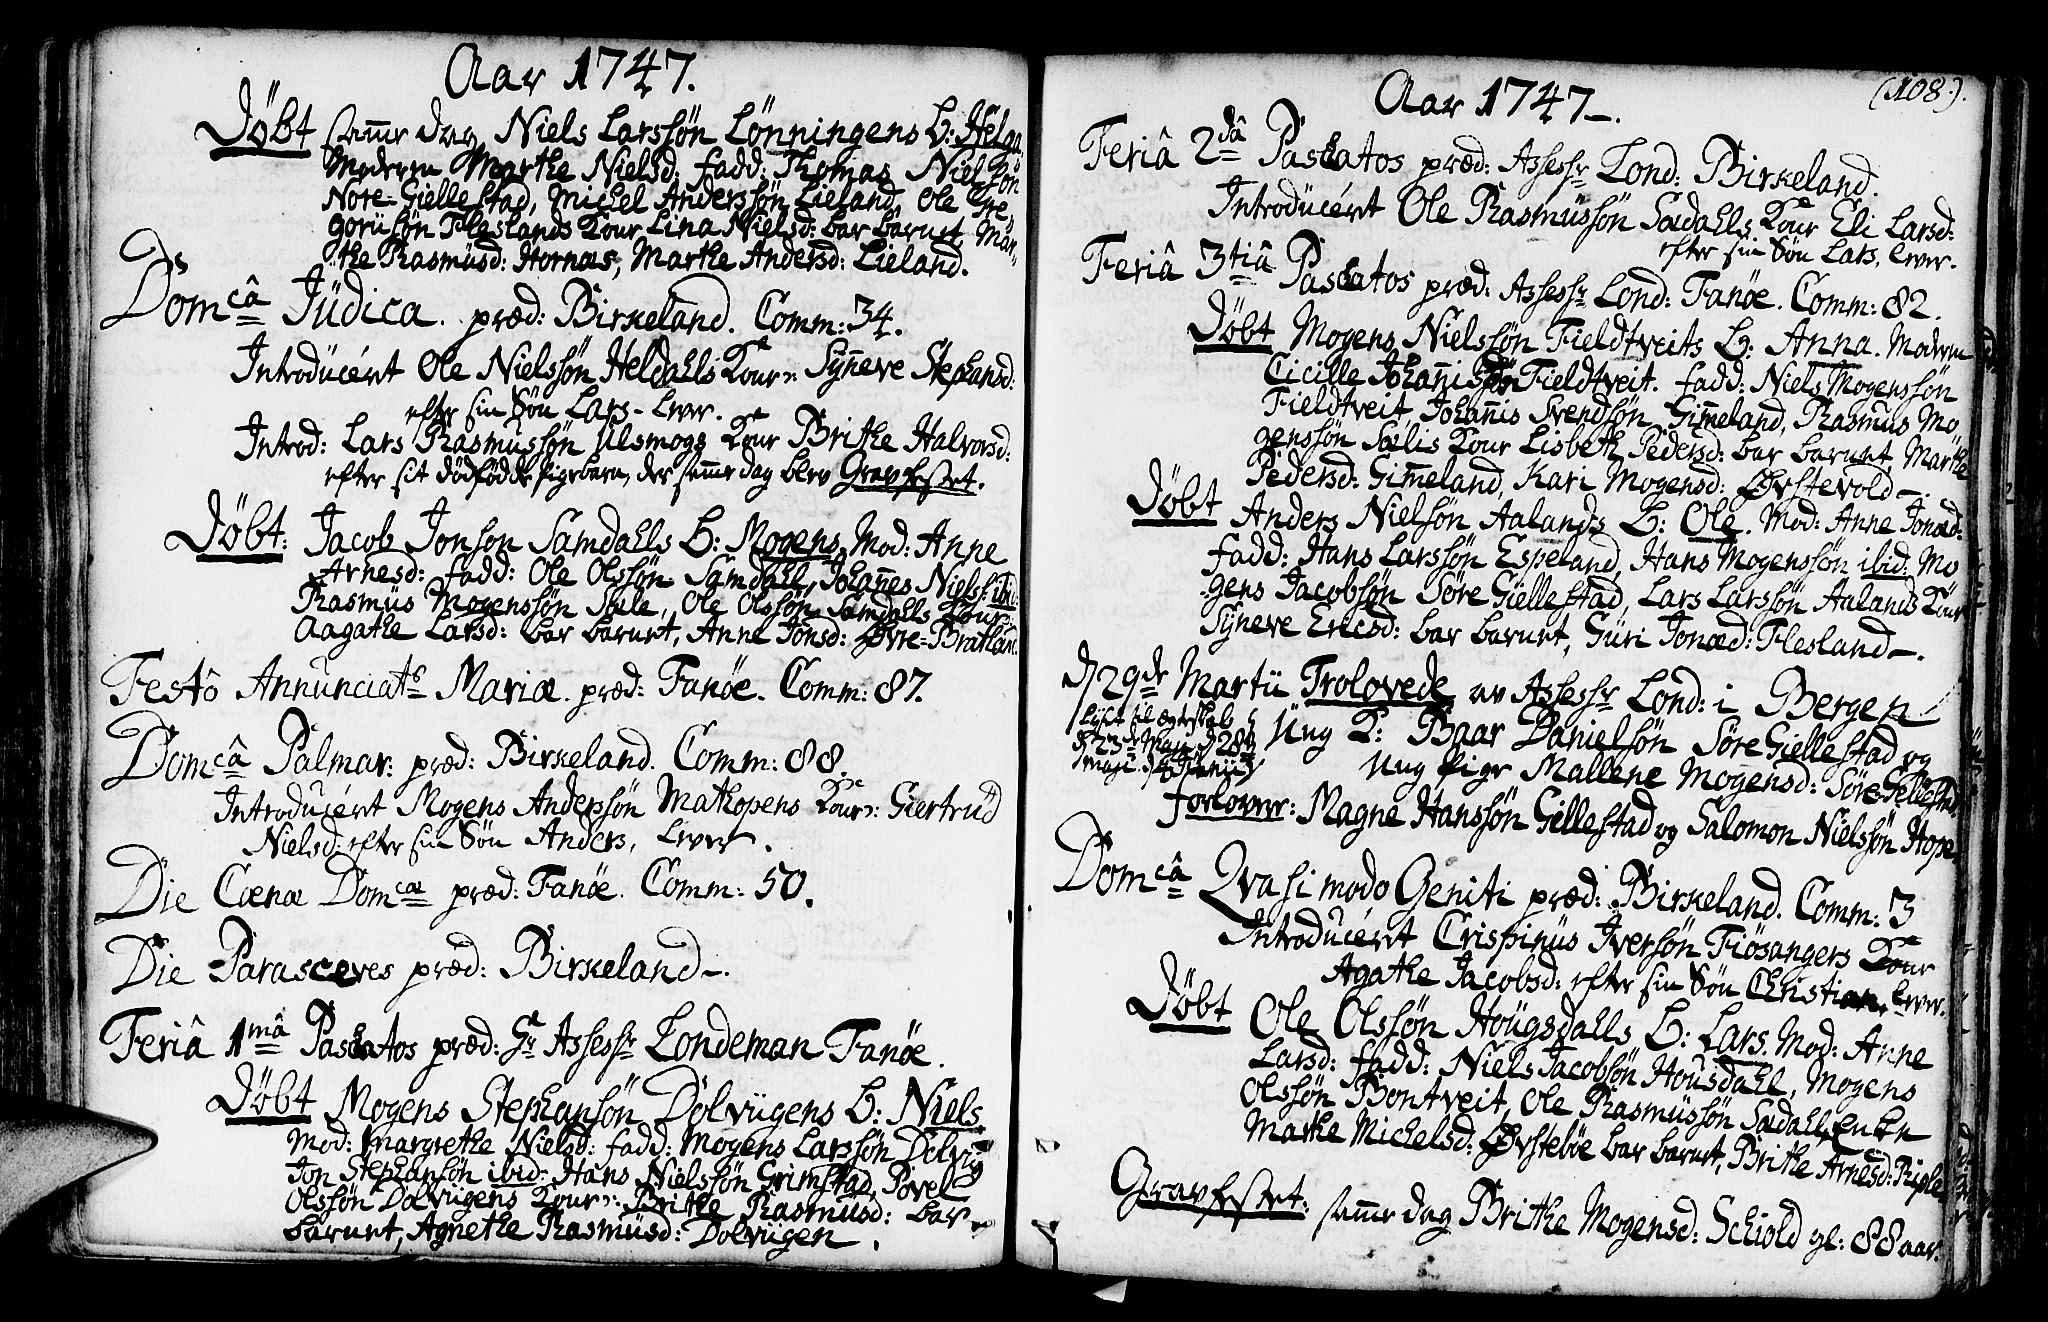 Aar 1747.
Döbt samme dag Niels Larssön Lönningens b: Helga
Moderen Marthe Nielsd: fadd: Thomas Nielssön
Nore-Giellestad, Michel Anderssön Lieland, Ole Gre
goriisön Fleslands Kone Lina Nielsd: bar barnet, Mari
the Rasmüsd: Hornæs, Marthe Andersd: Lieland.
Domcâ Jüdica. præd: Birkeland. Comm: 34.
Introducert Ole Nielssön Heldahls Kone: Synneve Stephansd:
efter sin Sön Lars, lever.
Introd: Lars Rasmussön Ulsmogs Kone Brithe Halvorsd:
efter sit dödfödde Pigebarn, der samme dag blev Gravfestet.
Döbt: Jacob Jonson Samdahls b: Mogens, Mod: Anne
Arnesd: fadd: Ole Olssön Samdahl, Johannes Niels: ibid:
Rasmüs Mogenssön Sæle, Ole Olssön Samdahls Kone
Aagathe Larsd: bar barnet, Anne Jonsd: Øvre-Brathun.
Festô Annunciats Mariæ. præd: Fanöe. Comm: 87.
Domcâ Palmar: præd: Birkeland. Comm: 88.
Introducert Mogens Anderssön Mathopens Kone: Giertrüd
Nielsd: efter sin Sön Anders, lever.
Die Cænæ Domcæ præd: Fanöe. Comm: 50.
Die Parasceves præd: Birkeland.
Feriâ 1mâ Paschatos præd: Hr Assessr Londeman Fanöe.
Döbt Mogens Stephansön Dolviigens b: Niels
Mod: Margrethe Nielsd: fadd: Mogens Larssön Dolviig
Jon Stephansön ibid: Hans Nielssön Grimstad, Povel
Olssön Dolviigens Kone: Brithe Rasmusd: bar
barnet, Agnethe Rasmüsd: Dolviigen.
(108).
Aar 1747.
Feriâ 2dâ Paschatos præd: Assessr Lond: Birkeland.
Introducert Ole Rasmüssön Sædahls Kone Eli Larsd:
efter sin Sön Lars, lever.
Feriâ 3tiâ Paschatos præd: Assessr Lond: Fanöe. Comm: 82.
Döbt Mogens Nielssön Fieldtveits b: Anna. Moderen
Cicille Johannisd: Fieldtveit. fadd: Niels Mogenssön
Fieldtveit, Johannis Svendsön Gimmeland, Rasmus Mo
genssön Sælis Kone Lisbeth Pedersd: bar barnet, Marthe
Pedersd: Gimmeland, Kari Mogensd: Øvstevold.
Döbt Anders Nielsön Aalands b: Ole. Mod: Anne Jonæd:
fadd: Hans Larssön Espeland, Hans Mogenssön ibid: Mo
gens Jacobsön Söre Giellestad, Lars Larssön Aalands Kone
Syneve Ericsd: bar barnet, Güri Jonæd: Flesland.
d 29de Martii Trolovede av Assessr Lond: i Bergen
Lyst til ægteskab
d 23de Maji d 28de
Maji, d 4 Junii
Ung K: Baar Danielsön Söre Giellestad og
Ung Pige Mallene Mogensd: Söre-Gellestad.
Forlover: Magne Hanssön Gillestad og Salomon Nielssön Hope.
Domcâ Qvasi modo Geniti præd: Birkeland. Comm: 3
Introducert Crispinüs Iversön Fiösangers Kone
Agathe Jacobsd: efter sin Sön Christian, lever.
Döbt Ole Olssön Hougsdahls b: Lars. Mod: Anne
Larsd: fadd: Niels Jacobsön Housdahl, Mogens
Olssön Bontveit, Ole Rasmüssön Sædahl, Enken
Marthe Michelsd: Øvstebøe bar barnet, Brithe Arnesd: Riple
Gravfestet: samme dag Brithe Mogensd: Schiold gl: 88 aar.